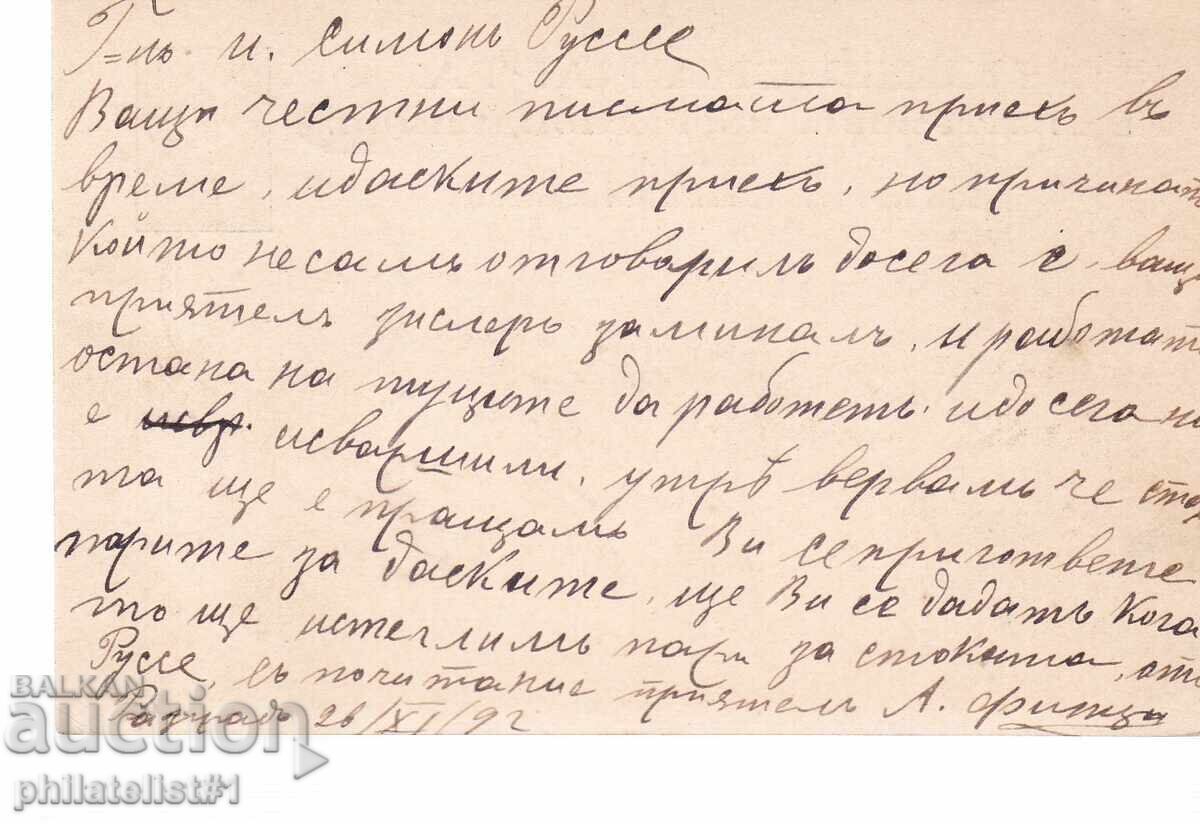 Г=нъ И. Симонъ Руссе
Ваши честни писмайта приехъ въ
време, и даските приехъ, но причинат
който несамъ отговарилъ досега е, ваш
приятелъ заминалъ, и работат
остана на да работетъ. и досега н
е исваршили, утрѣ вервамъ че сто
та ще е пращамъ Ви се пригответе
парите за даските, ще Ви се дадатъ кога
то ще истеглимъ пари за стоката, отъ
Руссе, съ почитание приятелъ А.
Разградъ 26/XI/92
BALKAN
auction
philatelist#1